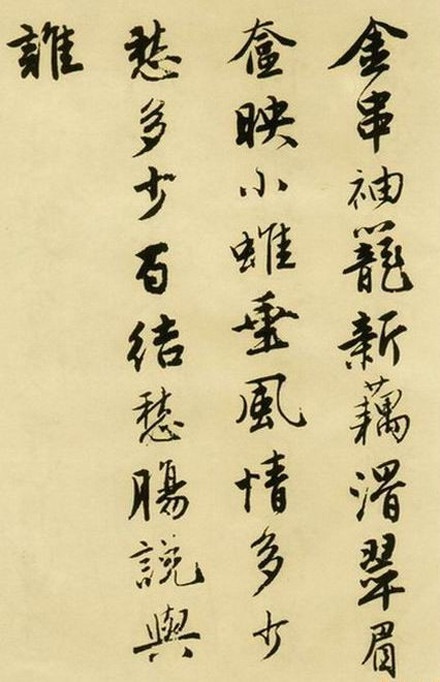 金串袖籠新藕滑翠眉
奩映小蛾垂風情多少
愁多少百結愁腸說與
誰